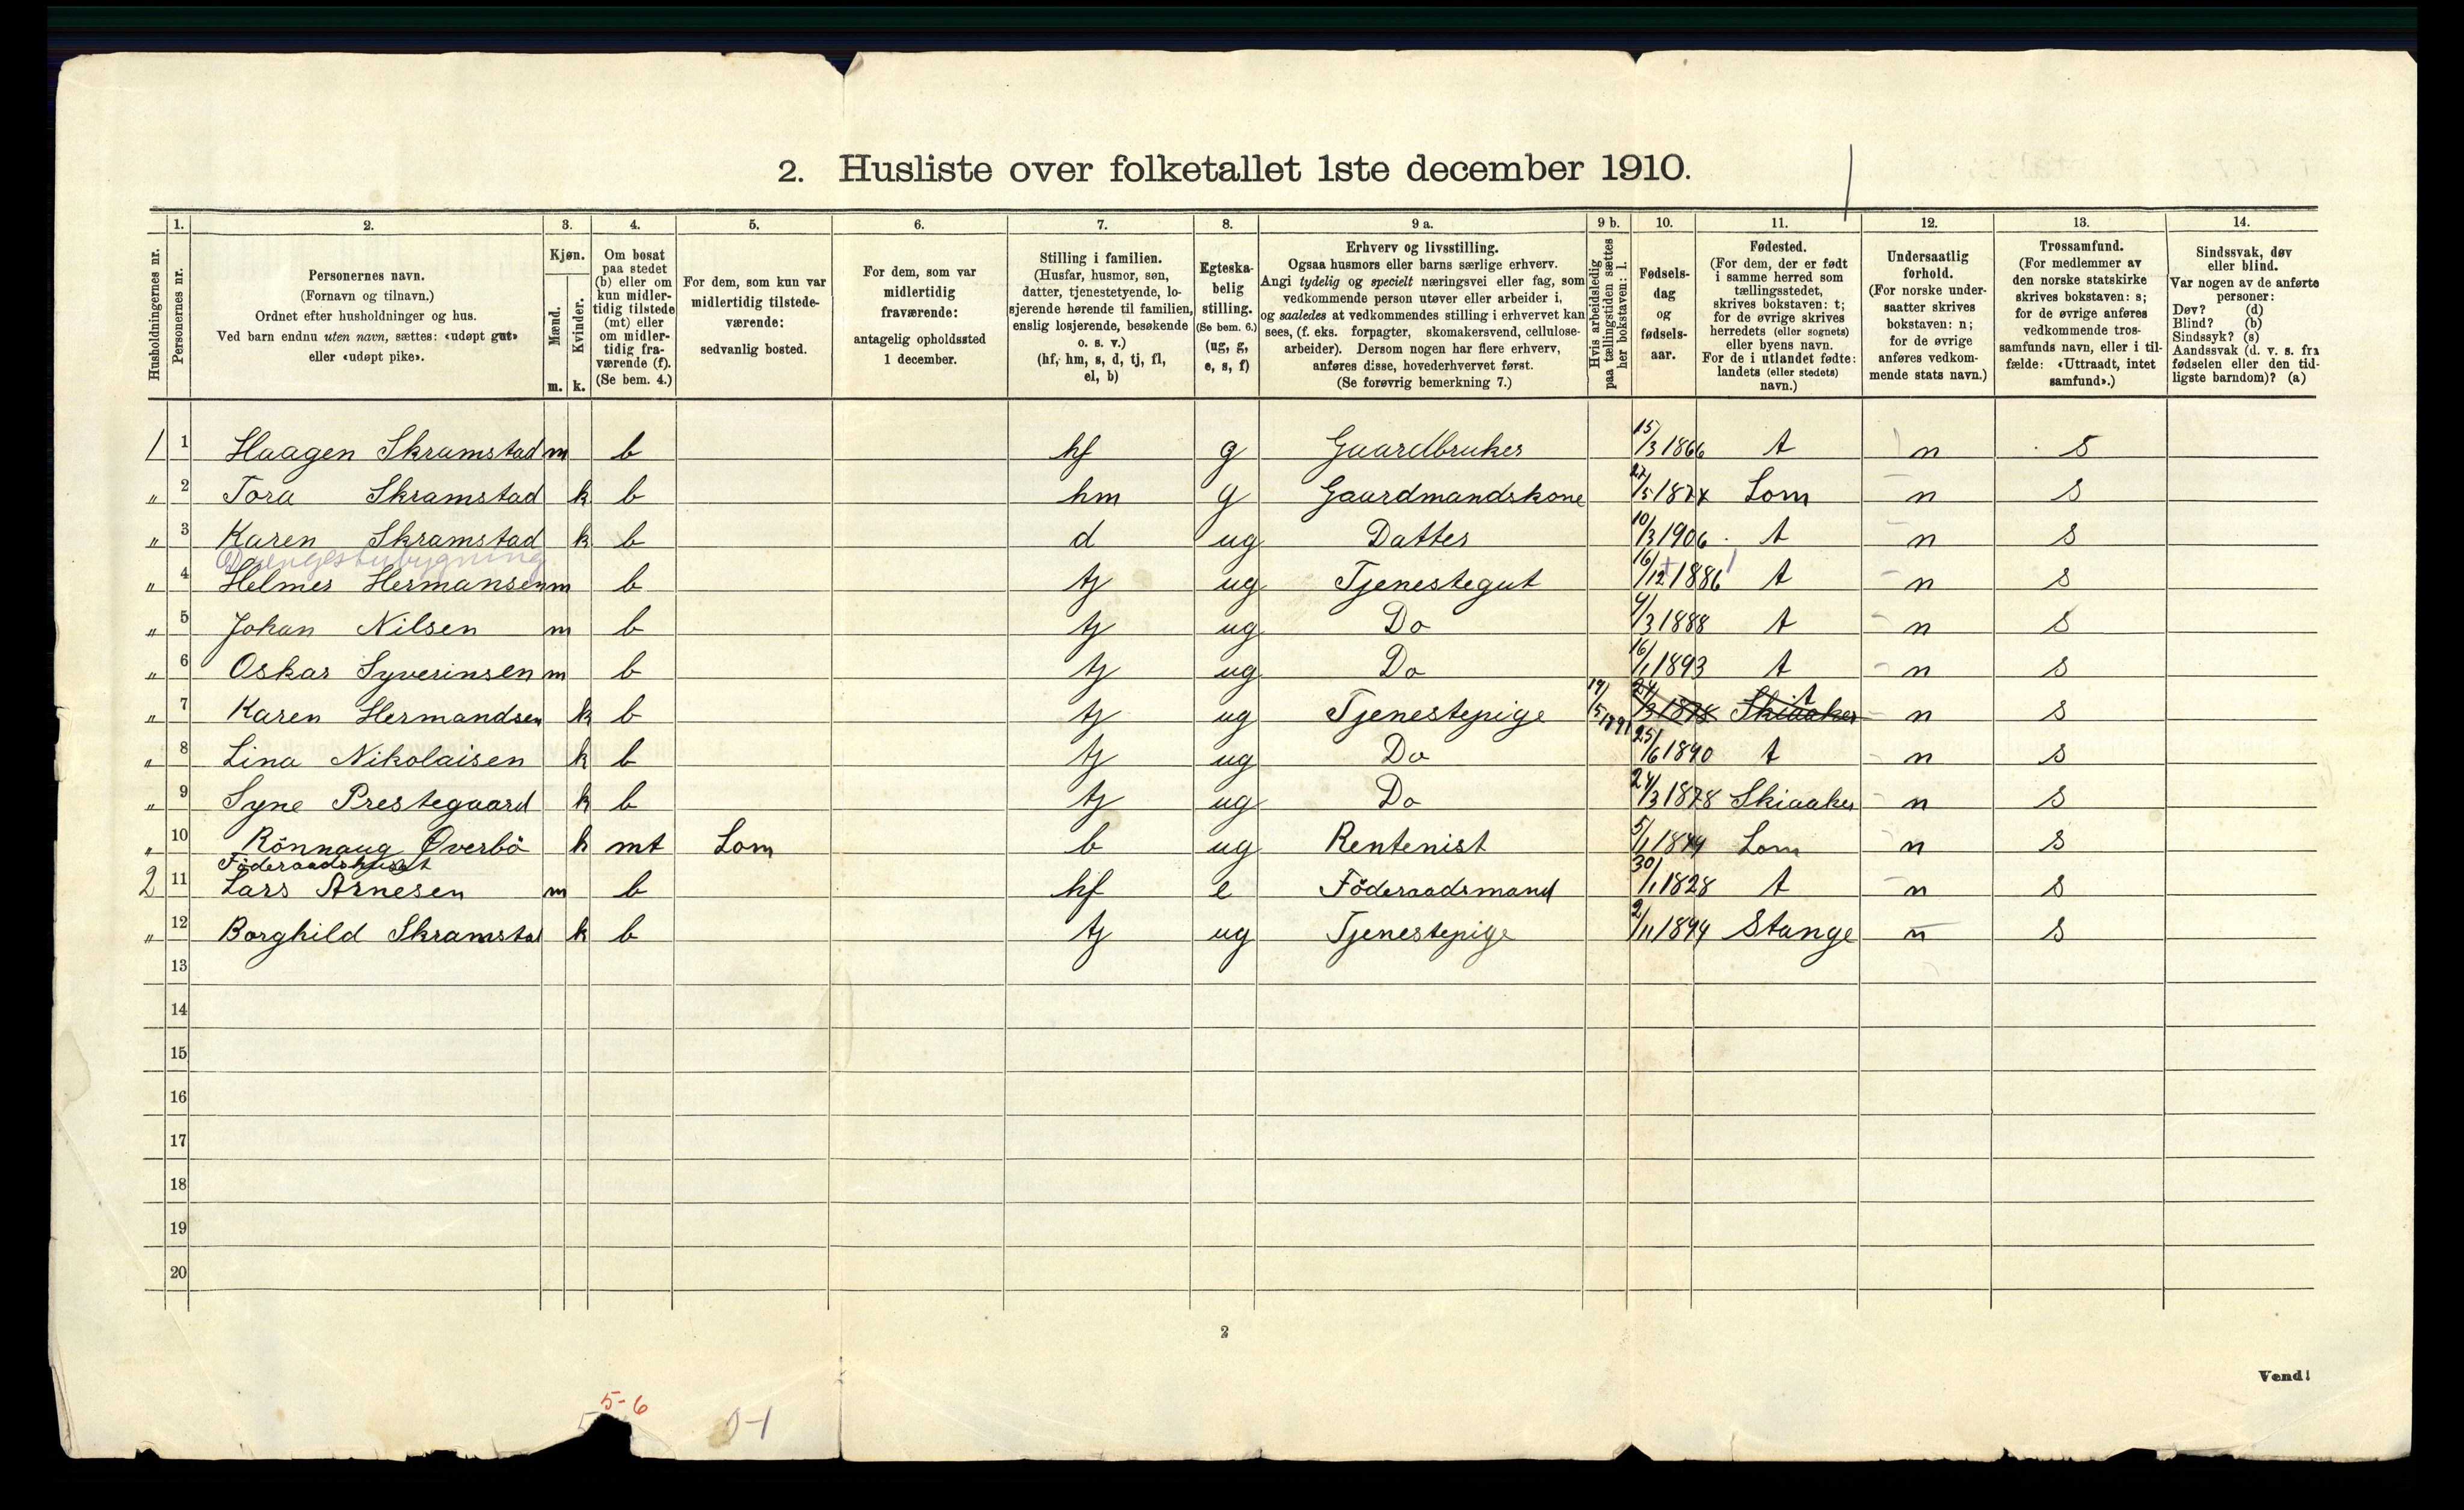 2. Husliste over folketallet 1ste december 1910.
Husholdningernes nr. | 1. Personernes nr. | 2. Personernes navn. (Fornavn og tilnavn.) Ordnet efter husholdninger og hus. Ved barn endnu uten navn, sættes: «udøpt gut» eller «udøpt pike». | 3. Kjøn. Mænd. m. Kvinder. k. | 4. Om bosat paa stedet (b) eller om kun midlertidig tilstede (mt) eller om midlertidig fraværende (f). (Se bem. 4.) | 5. For dem, som kun var midlertidig tilstedeværende: sedvanlig bosted. | 6. For dem, som var midlertidig fraværende: antagelig opholdssted 1 december. | 7. Stilling i familien. (Husfar, husmor, søn, datter, tjenestetyende, losjerende hørende til familien, enslig losjerende, besøkende o. s. v.) (hf, hm, s, d, tj, fl, el, b) | 8. Egteskabelig stilling. (Se bem. 6.) (ug, g, e, s, f) | 9 a. Erhverv og livsstilling. Ogsaa husmors eller barns særlige erhverv. Angi tydelig og specielt næringsvei eller fag, som vedkommende person utøver eller arbeider i, og saaledes at vedkommendes stilling i erhvervet kan sees, (f. eks. forpagter, skomakersvend, cellulosearbeider). Dersom nogen har flere erhverv, anføres disse, hovederhvervet først. (Se forøvrig bemerkning 7.) | 9 b. Hvis arbeidsledig paa tællingstiden sættes her bokstaven: l. | 10. Fødselsdag og fødselsaar. | 11. Fødested. (For dem, der er født i samme herred som tællingsstedet, skrives bokstaven: t; for de øvrige skrives herredets (eller sognets) eller byens navn. For de i utlandet fødte: landets (eller stedets) navn.) | 12. Undersaatlig forhold. (For norske undersaatter skrives bokstaven: n; for de øvrige anføres vedkommende stats navn.) | 13. Trossamfund. (For medlemmer av den norske statskirke skrives bokstaven: s; for de øvrige anføres vedkommende trossamfunds navn, eller i tilfælde: «Uttraadt, intet samfund».) | 14. Sindssvak, døv eller blind. Var nogen av de anførte personer: Døv? (d) Blind? (b) Sindssyk? (s) Aandssvak (d. v. s. fra fødselen eller den tidligste barndom)? (a)
1 | 1 | Haagen Skramstad | m | b | hf | g | Gaardbruker | 15/3 1866 | t | n | s
" | 2 | Tora Skramstad | k | b | hm | g | Gaardmandskone | 1874 | Lom | n | s
" | 3 | Karen Skramstad | k | b | d | ug | Datter | 10/3 1906 | t | n | s
Drengestubygning
" | 4 | Helmer Hermansen | m | b | tj | ug | Tjenestegut | 16/12 1886 | t | n | s
" | 5 | Johan Nilsen | m | b | tj | ug | Do | 4/3 1888 | t | n | s
" | 6 | Oskar Syverinsen | m | b | tj | ug | Do | 16/1 1893 | t | n | s
" | 7 | Karen Hermandsen | k | b | tj | ug | Tjenestepige | 24/3 1878 | Skiaaker t | n | s
" | 8 | Lina Nikolaisen | k | b | tj | ug | Do | 25/6 1890 | t | n | s
" | 9 | Syne Prestegaard | k | b | tj | ug | Do | 24/3 1878 | Skiaaker | n | s
" | 10 | Rönnaug Øverbö | k | mt | Lom | b | ug | Rentenist | 5/1 1844 | Lom | n | s
Föderaadshuset
2 | 11 | Lars Arnesen | m | b | hf | e | Föderaadsmand | 30/1 1828 | t | n | s
" | 12 | Borghild Skramstad | k | b | tj | ug | Tjenestepige | 2/11 1894 | Stange | n | s
13
14
15
16
17
18
19
20
2
Vend!
5-6
0-1